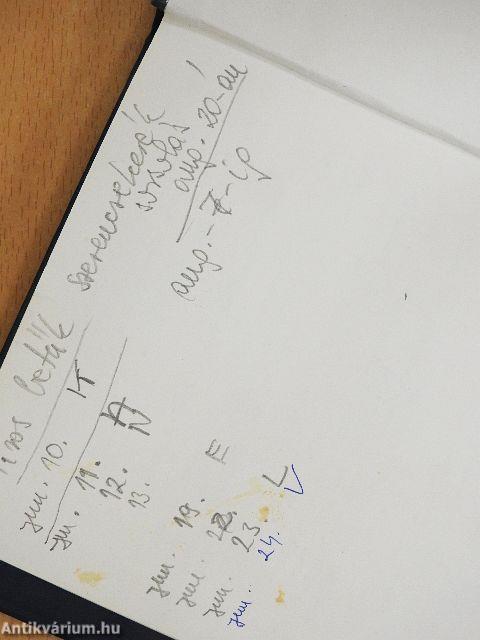 piros betűk
jun. 10. K
jun. 11. A
12. N
13.
jun. 19. E
jun. 22.
jun. 23. L
jun. 24. V
szerencsekerék
sorsolás
aug. 20-án!
aug. 7-ig
Antikvárium.hu